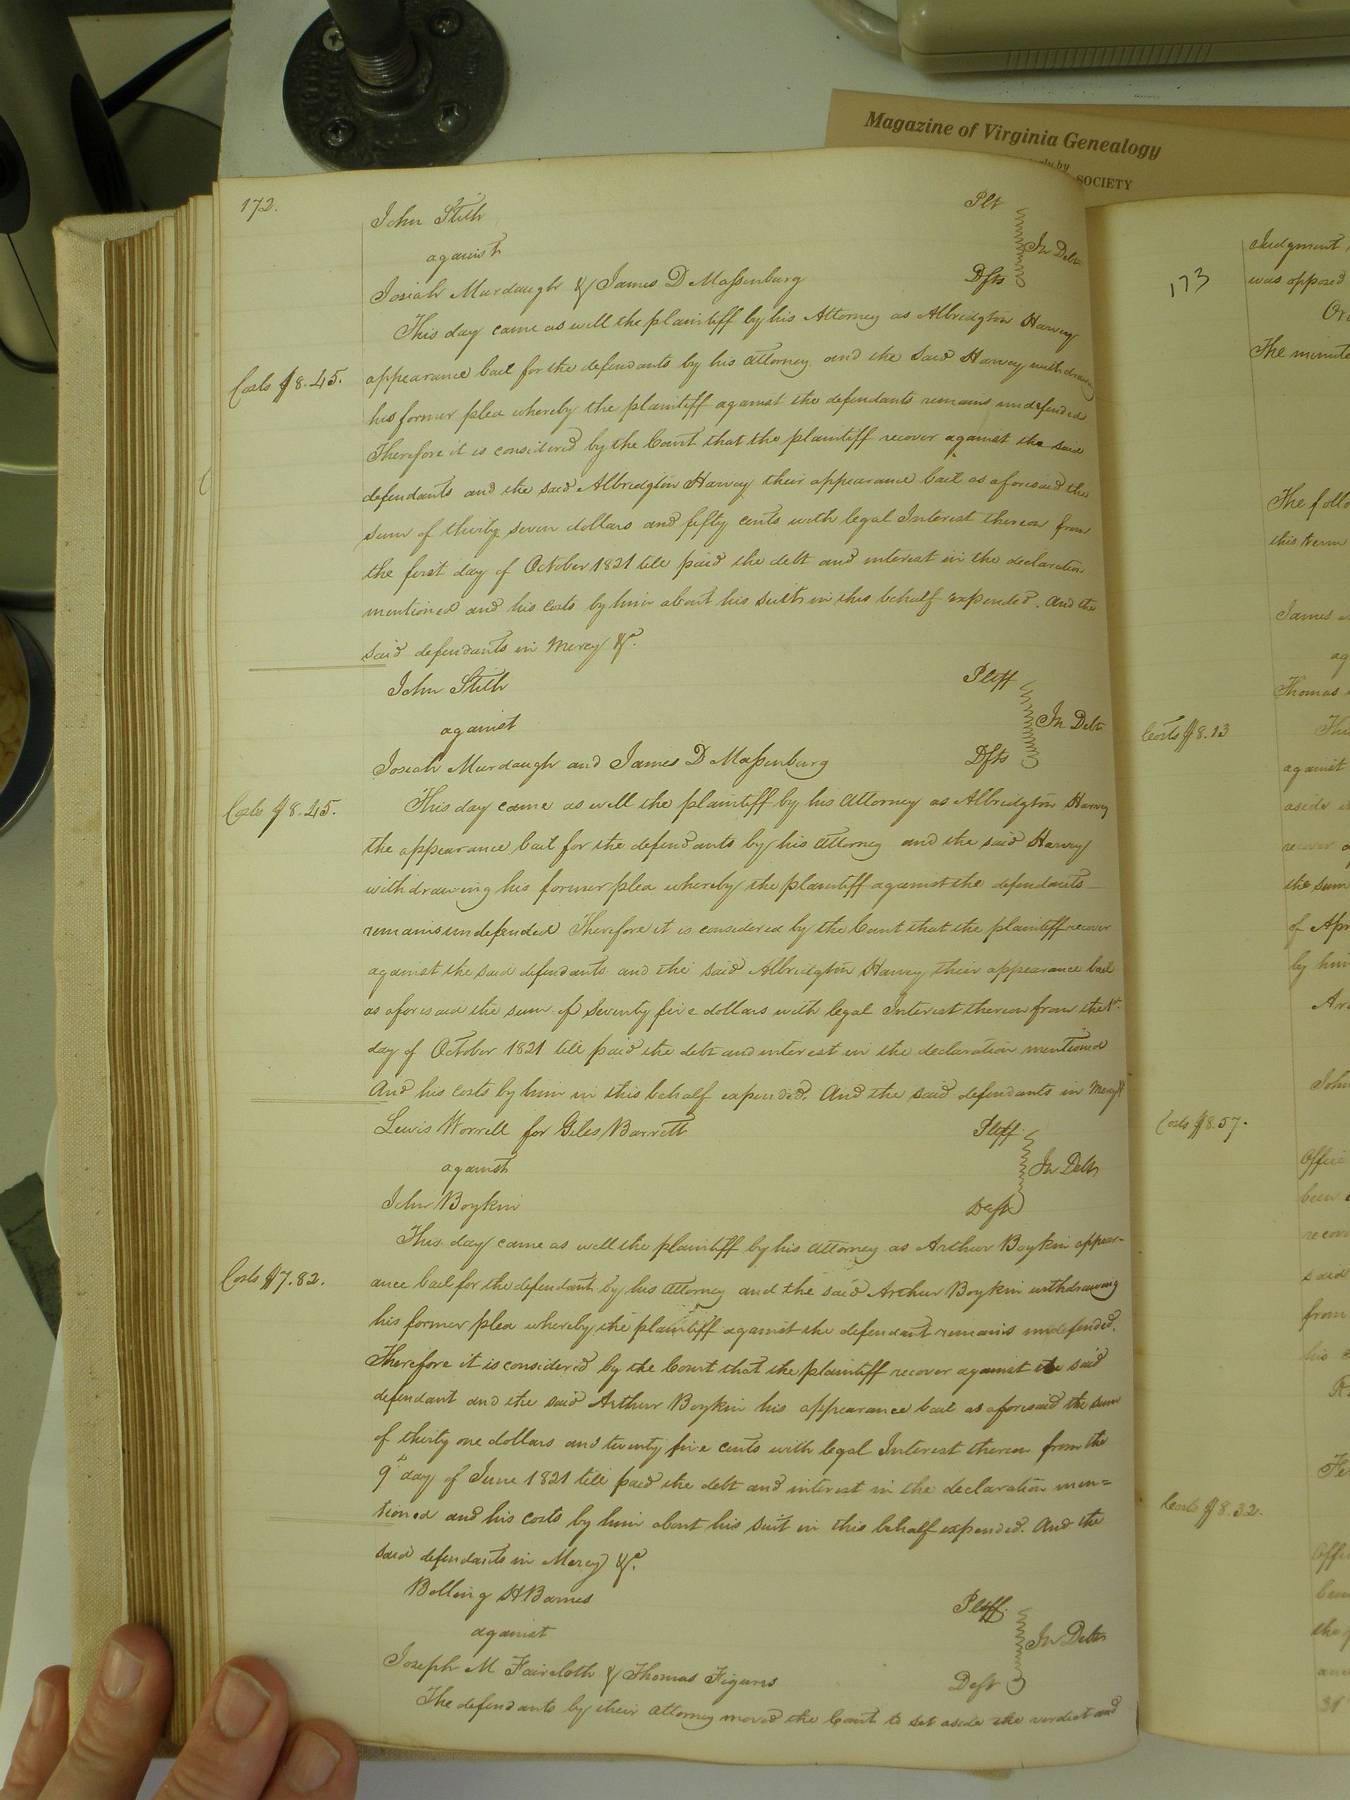 Magazine of Virginia Genealogy
SOCIETY
172.
John Stith Plt
against In Debt
Josiah Murdaugh & James D Massenburg Dfts
This day came as well the plaintiff by his Attorney as Albridgton Harvey
Costs $8.45.
appearance bail for the defendants by his attorney and the said Harvey withdrawing
his former plea whereby the plaintiff against the defendants remains undefended
Therefore it is considered by the Court that the plaintiff recover against the said
defendants and the said Albridgton Harvey their appearance bail as aforesaid the
sum of thirty seven dollars and fifty cents with legal Interest thereon from
the first day of October 1821 till paid the debt and interest in the declaration
mentioned and his costs by him about his suit in this behalf expended. And the
said defendants in Mercy &c.
John Stith Pltff
against In Debt
Josiah Murdaugh and James D Massenburg Dfts
Costs $8.45.
This day came as well the plaintiff by his attorney as Albridgton Harvey
the appearance bail for the defendants by his attorney and the said Harvey
withdrawing his former plea whereby the plaintiff against the defendants
remains undefended Therefore it is considered by the Court that the plaintiff recover
against the said defendants and the said Albridgton Harvey their appearance bail
as aforesaid the sum of Seventy five dollars with legal Interest thereon from the 1st.
day of October 1821 till paid the debt and interest in the declaration mentioned
And his costs by him in this behalf expended. And the said defendants in Mercy &
Lewis Worrell for Giles Barrett Pltff
against In Debt
John Boykin Deft
This day came as well the plaintiff by his attorney as Arthur Boykin appear-
Costs $7.82.
ance bail for the defendant by his attorney and the said Arthur Boykin withdrawing
his former plea whereby the plaintiff against the defendant remains undefended.
Therefore it is considered by the Court that the plaintiff recover against the said
defendant and the said Arthur Boykin his appearance bail as aforesaid the sum
of thirty one dollars and twenty five cents with legal Interest thereon from the
9th day of June 1821 till paid the debt and interest in the declaration men=
tioned and his costs by him about his suit in this behalf expended. And the
said defendants in Mercy &c.
Bolling H Barnes Pltff
against In Debt
Joseph M Faircloth & Thomas Figures Deft
The defendants by their attorney moved the Court to set aside the verdict and
173
Judgment
was opposed
The minute
The follo
this term
James
Thomas
Costs $8.13
against
aside
recover
the sum
of Apr
by him
John
Costs $8.57.
Office
been
said
from
his
Costs $8.32.